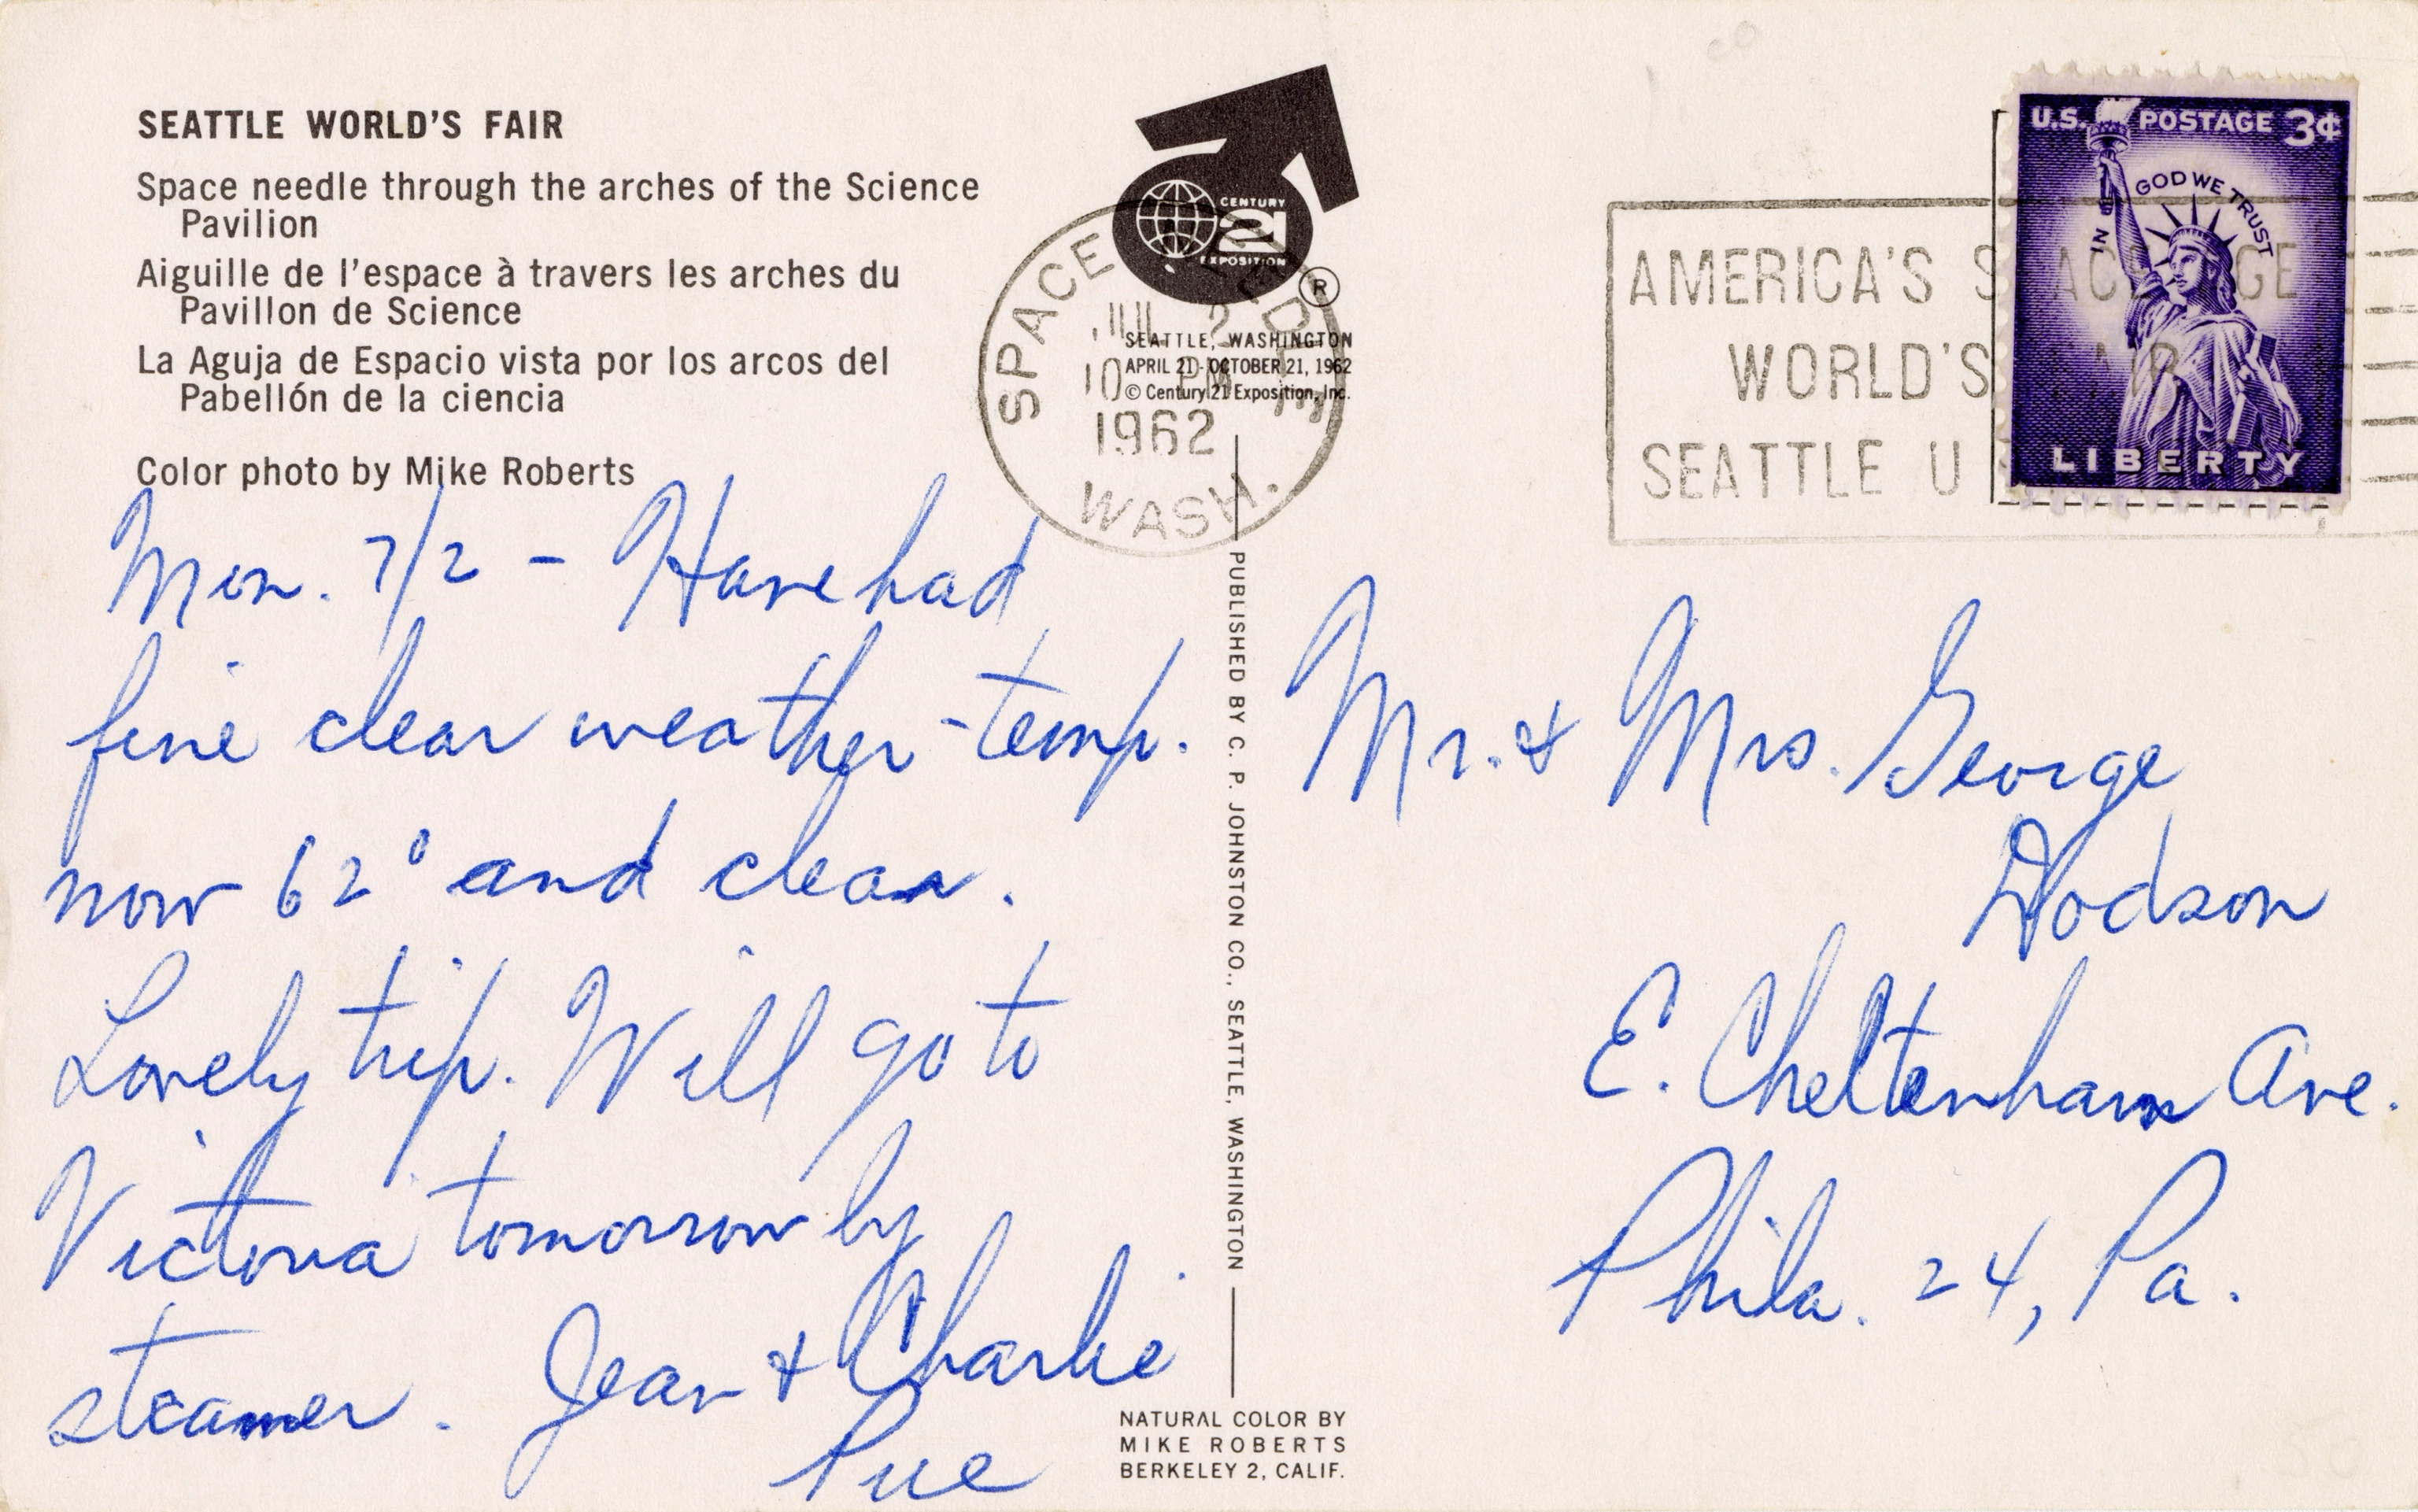 SEATTLE WORLD'S FAIR
Space needle through the arches of the Science
Pavilion
Aiguille de l'espace à travers les arches du
Pavillon de Science
La Aguja de Espacio vista por los arcos del
Pabellón de la ciencia
Color photo by Mike Roberts
CENTURY
21
EXPOSITION
®
SEATTLE, WASHINGTON
APRIL 21 - OCTOBER 21, 1962
© Century 21 Exposition, Inc.
SPACE
JUL 2
10 PM
1962
WASH.
AMERICA'S SPACE AGE
WORLD'S FAIR
SEATTLE U
U.S. POSTAGE 3¢
IN GOD WE TRUST
LIBERTY
Mon. 7/2 - Have had
fine clear weather - temp.
now 62° and clear.
Lovely trip. Will go to
Victoria tomorrow by
steamer. Jean & Charlie
Pue
PUBLISHED BY C. P. JOHNSTON CO., SEATTLE, WASHINGTON
Mr. & Mrs. George
Dodson
E. Cheltenham Ave.
Phila. 24, Pa.
NATURAL COLOR BY
MIKE ROBERTS
BERKELEY 2, CALIF.